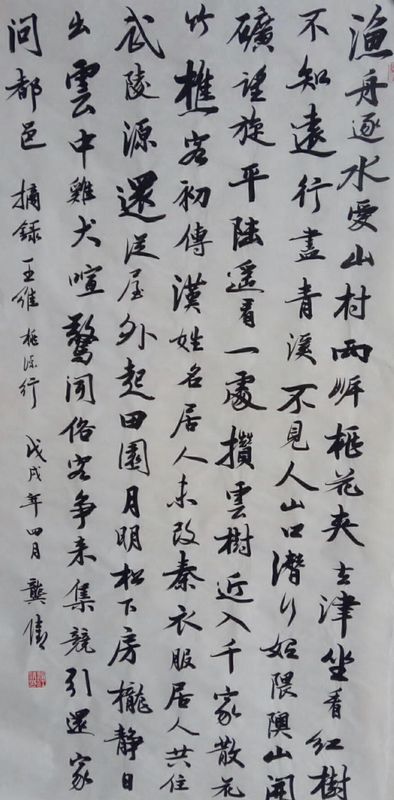 漁舟逐水愛山村兩岸桃花夾去津坐看紅樹
不知遠行盡青溪不見人山口潛行始隈隩山開
礦望旋平陸遥看一處攢雲樹近入千家散花
竹樵客初傳漢姓名居人未改秦衣服居人共住
武陵源還從屋外起田園月明松下房櫳靜日
出雲中雞犬喧驚聞俗客爭來集競引還家
問都邑 摘録王維桃源行 戊戌年四月 龔